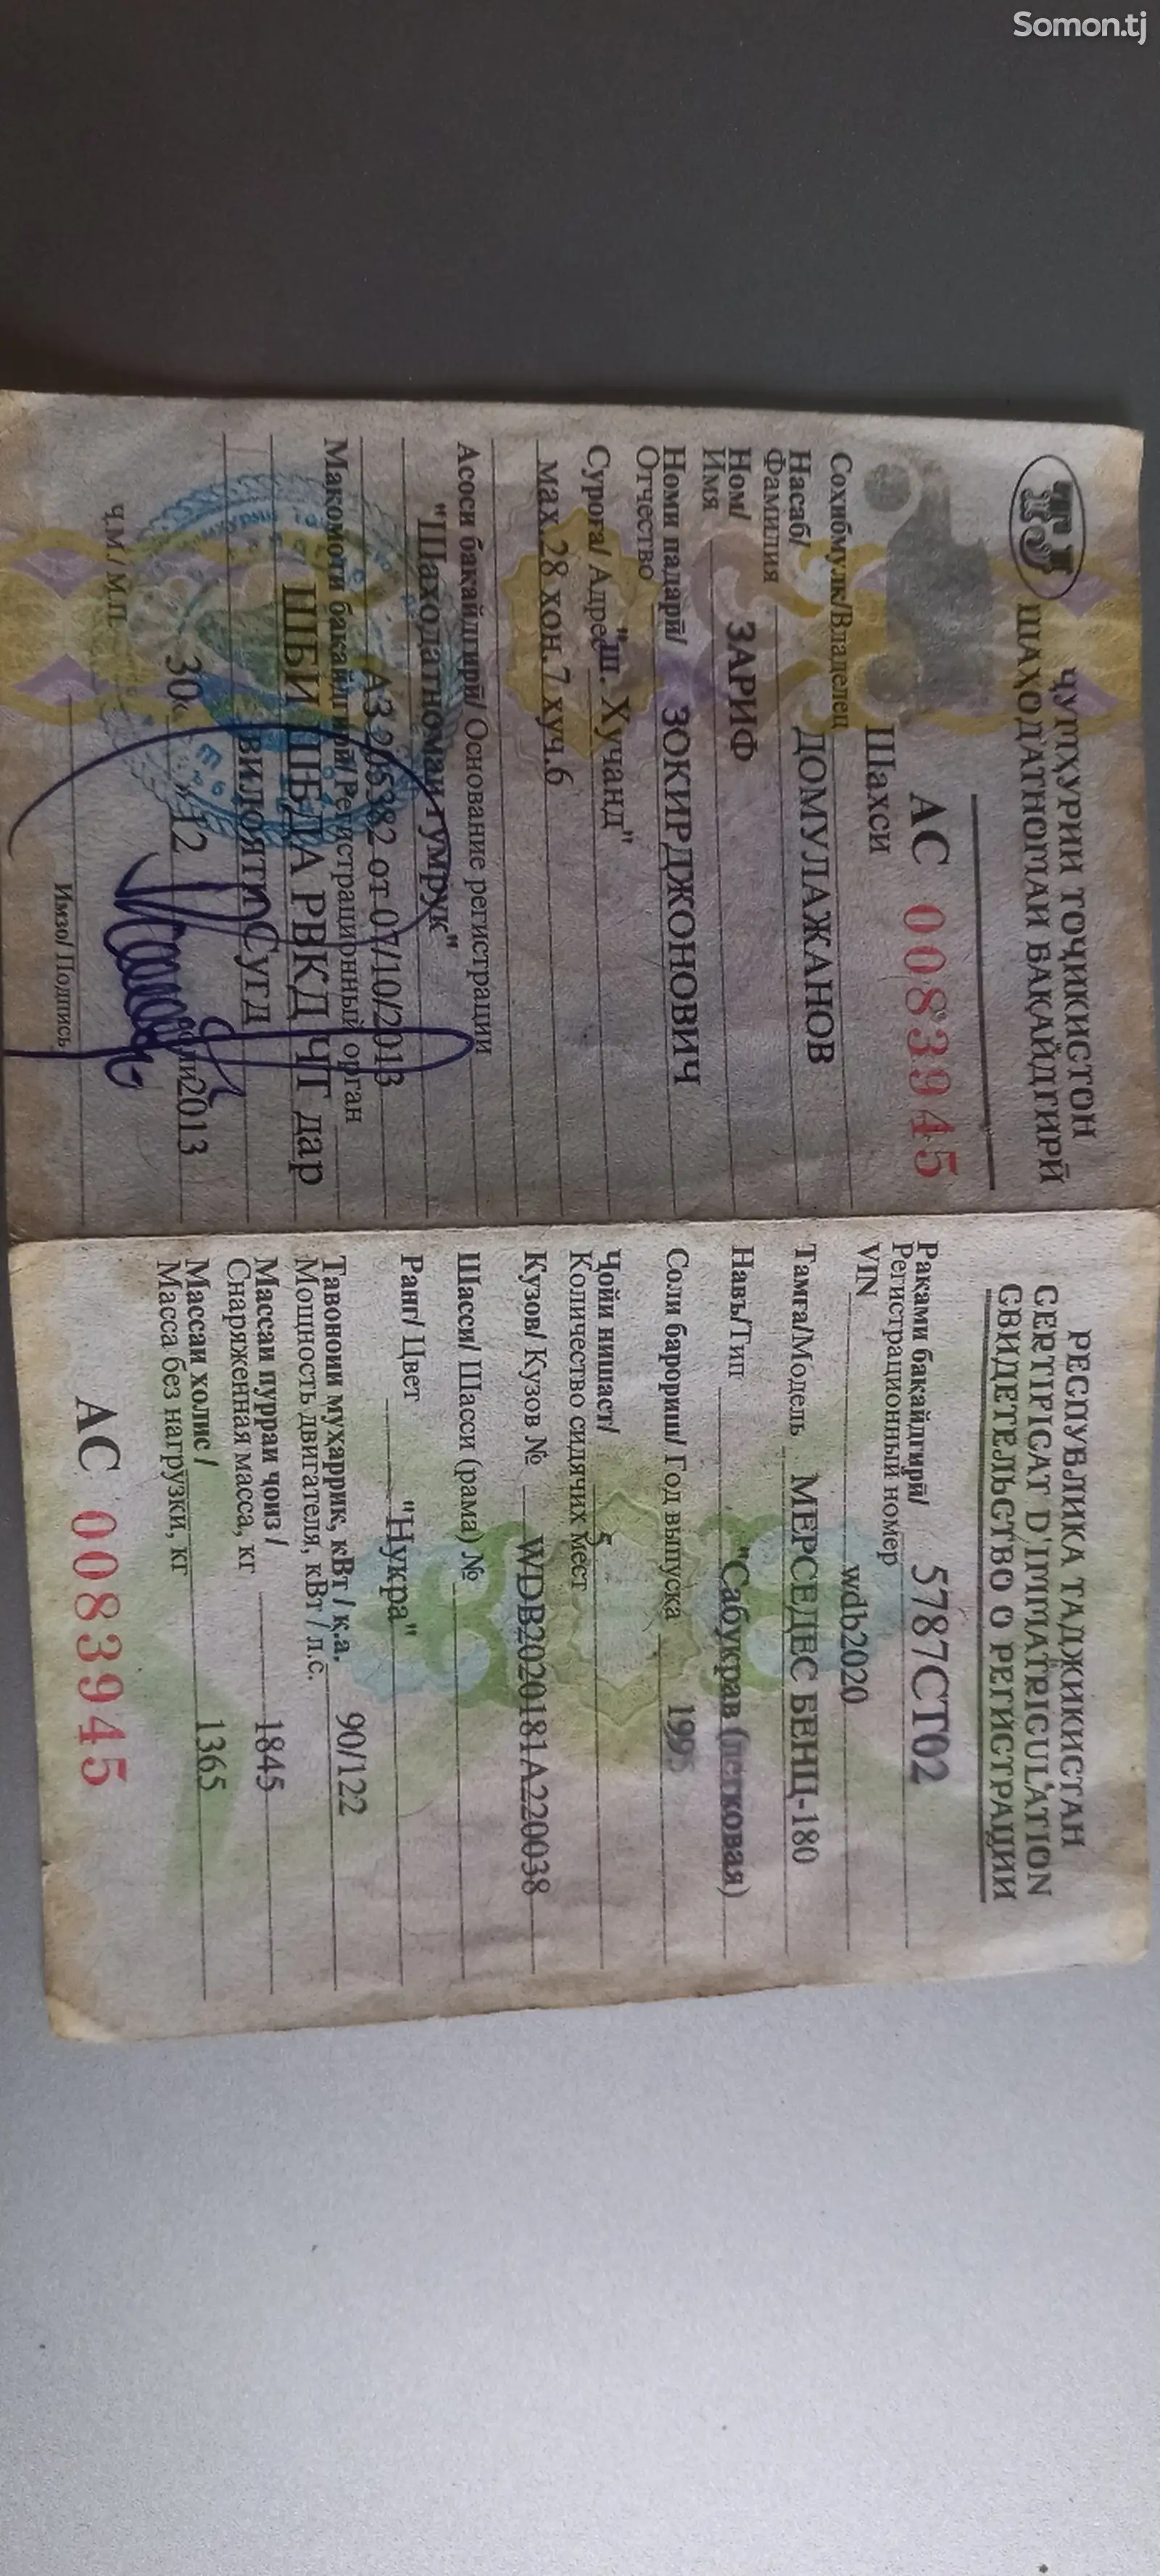 Somon.tj
TJ
ҶУМҲУРИИ ТОҶИКИСТОН
ШАҲОДАТНОМАИ БАҚАЙДГИРӢ
АС 0083945
Шахси
Сохибмулк/Владелец
Насаб/ ДОМУЛАЖАНОВ
Фамилия
Ном/ ЗАРИФ
Имя
Номи падарӣ/ ЗОКИРДЖОНОВИЧ
Отчество
Суроға/ Адрес "ш. Хучанд"
мах.28 хон.7 хуч.6
Асоси бакайдгирӣ/ Основание регистрации
"Шаходатномаи гумрук"
АЗ 205382 от 07/10/2013
Макомоти бакайдгирӣ/Регистрационный орган
ШБИ ШБДА РВКД ҶТ дар
вилояти Сугд
30 12 2013
Ҷ.М./ М.П.
Имзо/ Подпись
РЕСПУБЛИКА ТАДЖИКИСТАН
CERTIFICAT D'IMMATRICULATION
СВИДЕТЕЛЬСТВО О РЕГИСТРАЦИИ
Раками бакайдгирӣ/ 5787СТ02
Регистрационный номер
VIN wdb2020
Тамға/Модель МЕРСЕДЕС БЕНЦ-180
Навъ/Тип "Сабукрав (легковая)
Соли барориш/ Год выпуска
Ҷойи нишаст/ 5
Количество сидячих мест
Кузов/ Кузов № WDB2020181A220038
Шасси/ Шасси (рама) №
Ранг/ Цвет "Нукра"
Тавоноии муҳаррик, кВт / қ.а. 90/122
Мощность двигателя, кВт / л.с.
Массаи пурраи ҷоиз / 1845
Снаряженная масса, кг
Массаи холис / 1365
Масса без нагрузки, кг
АС 0083945